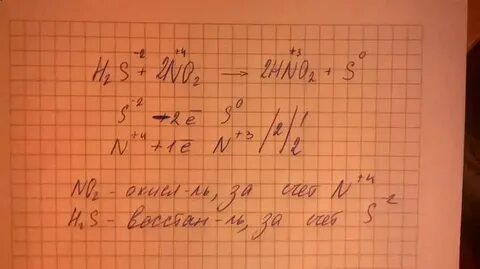 H₂S⁻² + 2N⁺⁴O₂ → 2HN⁺³O₂ + S⁰
S⁻² -2ē S⁰ /2/1
N⁺⁴ +1ē N⁺³ /1/2
NO₂ - окисл-ль, за счет N⁺⁴
H₂S - восстан-ль, за счет S⁻²